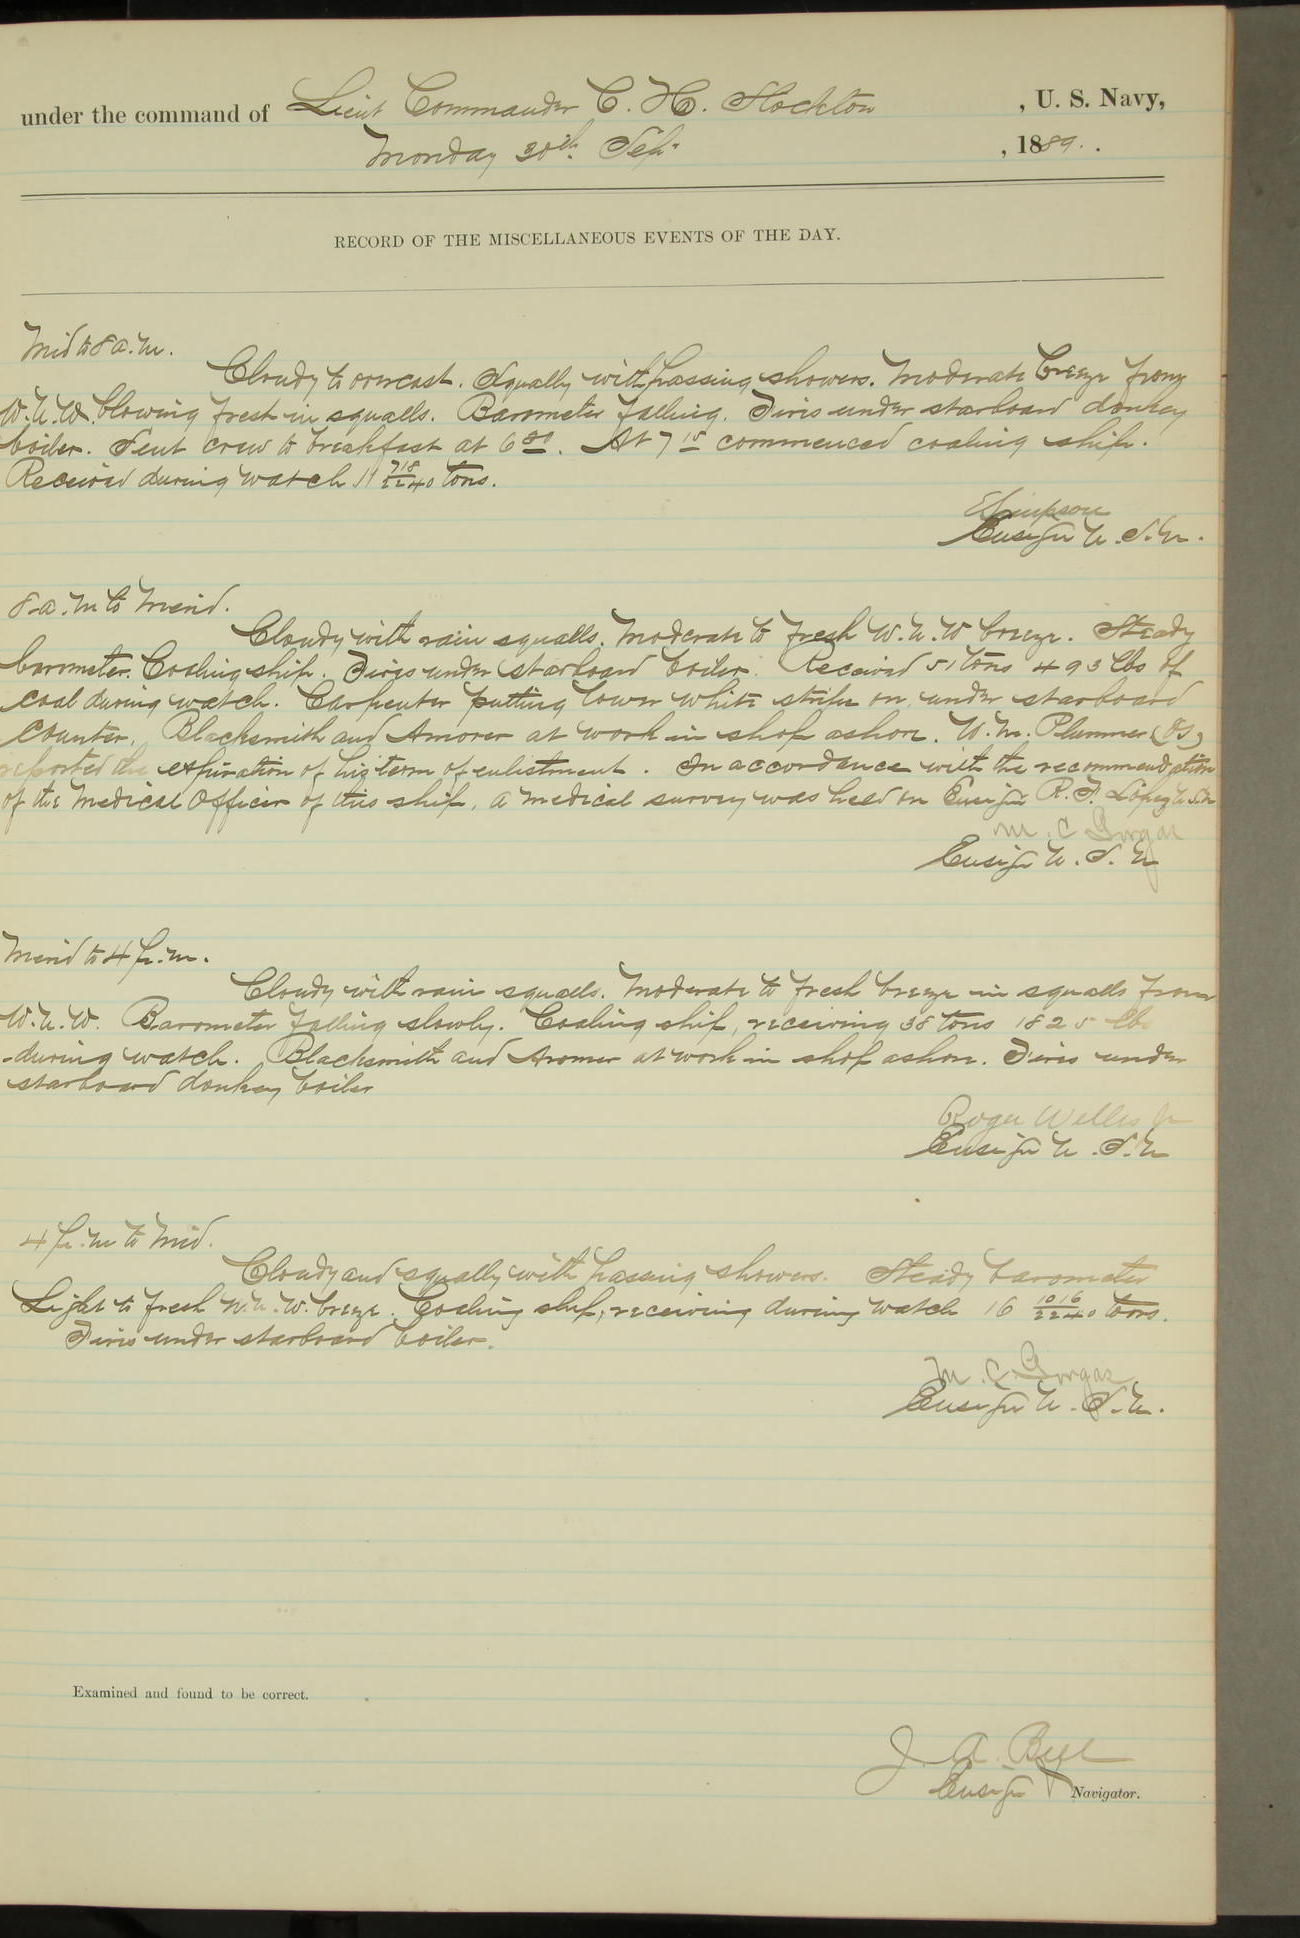 under the command of Lieut Commander C. H. Stockton , U. S. Navy,
Monday 30th Sep. , 1889.
RECORD OF THE MISCELLANEOUS EVENTS OF THE DAY.
Mid to 8 a.m.
Cloudy to overcast. Squally with passing showers. Moderate breeze from
W.N.W. blowing fresh in squalls. Barometer falling. Fires under starboard donkey
boiler. Sent crew to breakfast at 6 30. At 7 15 commenced coaling ship.
Received during watch 11 718/2240 tons.
E Simpson
Ensign U.S.N.
8 a.m to Merid.
Cloudy with rain squalls. Moderate to fresh W.N.W breeze. Steady
barometer. Coaling ship. Fires under starboard boiler. Received 51 tons 493 lbs of
coal during watch. Carpenter putting lower white stripe on under starboard
counter. Blacksmith and Amorer at work in shop ashore. W. M. Plummer
reported the expiration of his term of enlistment. In accordance with the recommendation
of the Medical Officer of this ship, a medical survey was held on Ensign R. F. Lopez U.S.N
M. C Gorgas
Ensign U.S.N
Merid to 4 p.m.
Cloudy with rain squalls. Moderate to fresh breeze in squalls from
W.N.W. Barometer falling slowly. Coaling ship, receiving 38 tons 1825 lbs
during watch. Blacksmith and Aromer at work in shop ashore. Fires under
starboard donkey boiler
Roger Welles Jr
Ensign U.S.N
4 p.m to Mid.
Cloudy and squally with passing showers. Steady barometer
Light to fresh W.N.W. breeze. Coaling ship, receiving during watch 16 1016/2240 tons.
Fires under starboard boiler.
M. C. Gorgas
Ensign U.S.N.
Examined and found to be correct.
J. A. Bell
Ensign Navigator.